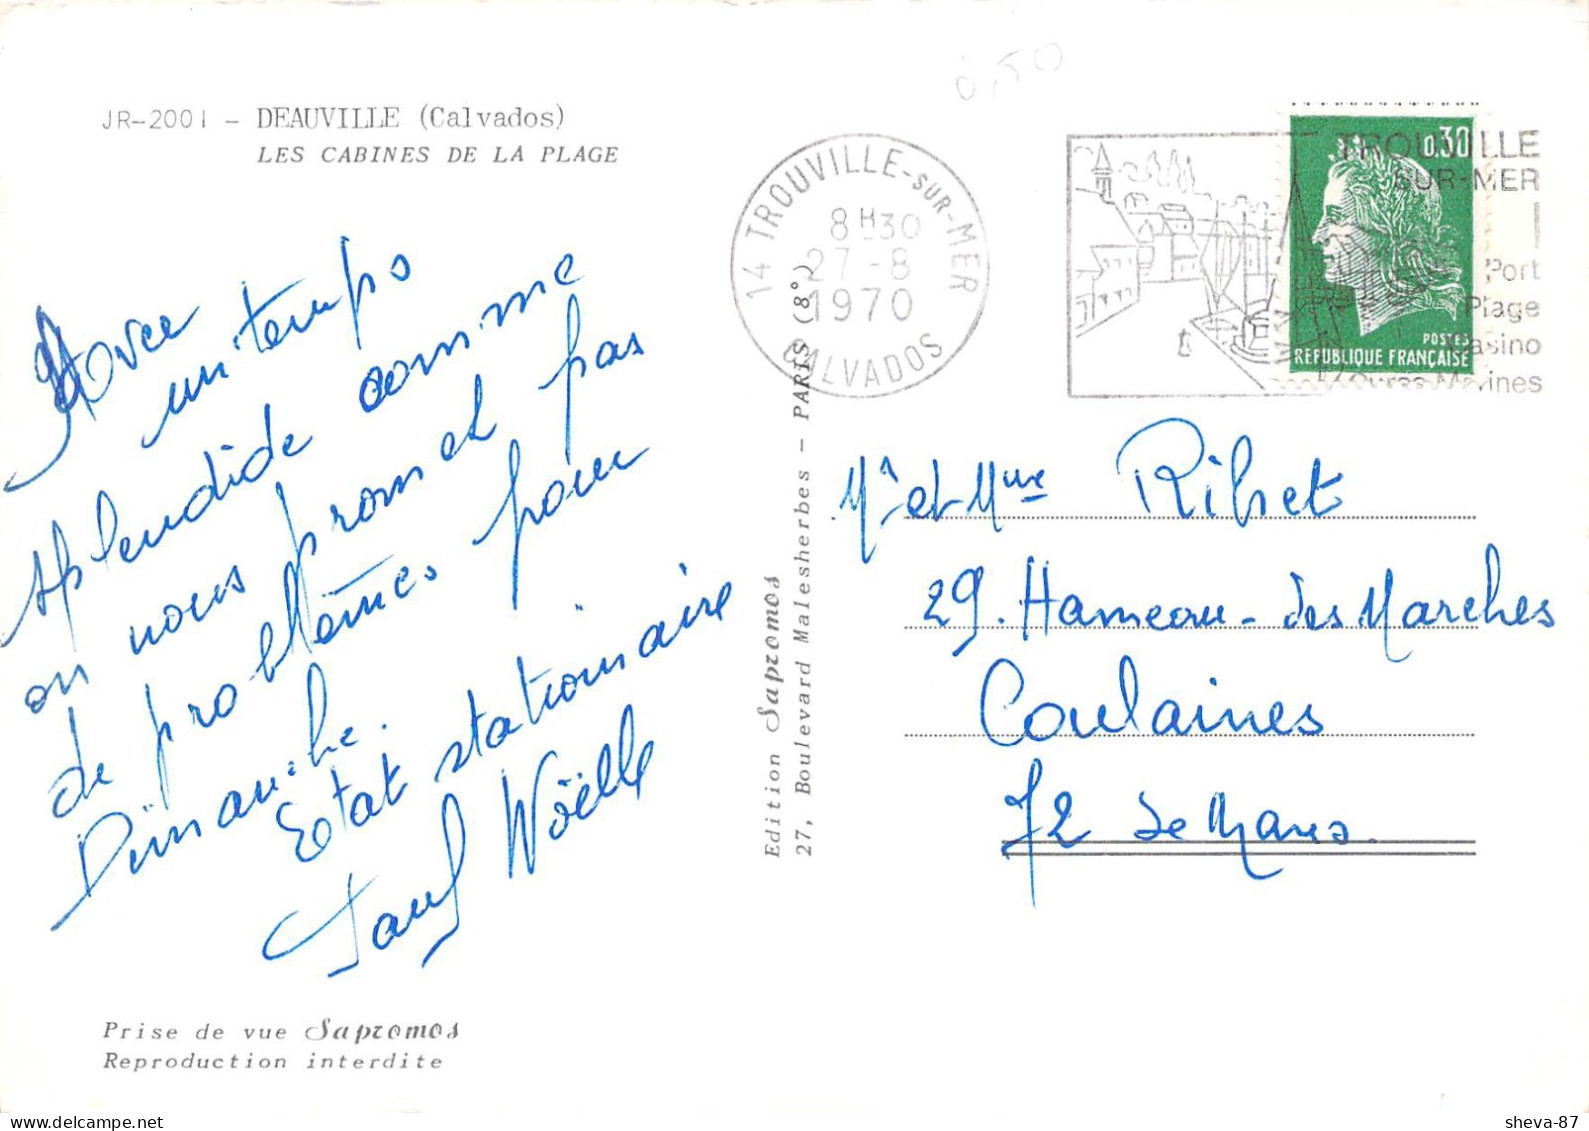 0,50
JR-2001 - DEAUVILLE (Calvados)
LES CABINES DE LA PLAGE
Avec
un temps
splendide comme
on nous promet pas
de problèmes pour
Dimanche.
Etat stationnaire
sauf Noëlle
Prise de vue Sapromos
Reproduction interdite
Edition Sapromos
27, Boulevard Malesherbes - PARIS (8°)
14 TROUVILLE-SUR-MER
8H30
27-8
1970
CALVADOS
TROUVILLE
SUR-MER
Port
Plage
Casino
Cures Marines
0,30
POSTES
REPUBLIQUE FRANÇAISE
Mr et Mme Ribet
29. Hameau-des Marches
Coulaines
72 Le Mans.
sheva-87